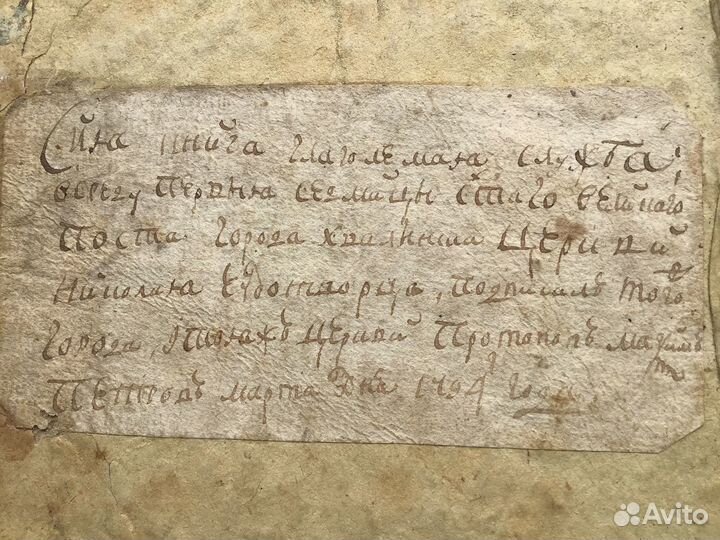 Сийя книга глаголемая служба,
первыя седмицы стаго великаго
поста города хвалынска церкви
николая чудотворца, подписалъ того
города, церкви протопопъ
Петровъ марта дня 1794 года.
Avito